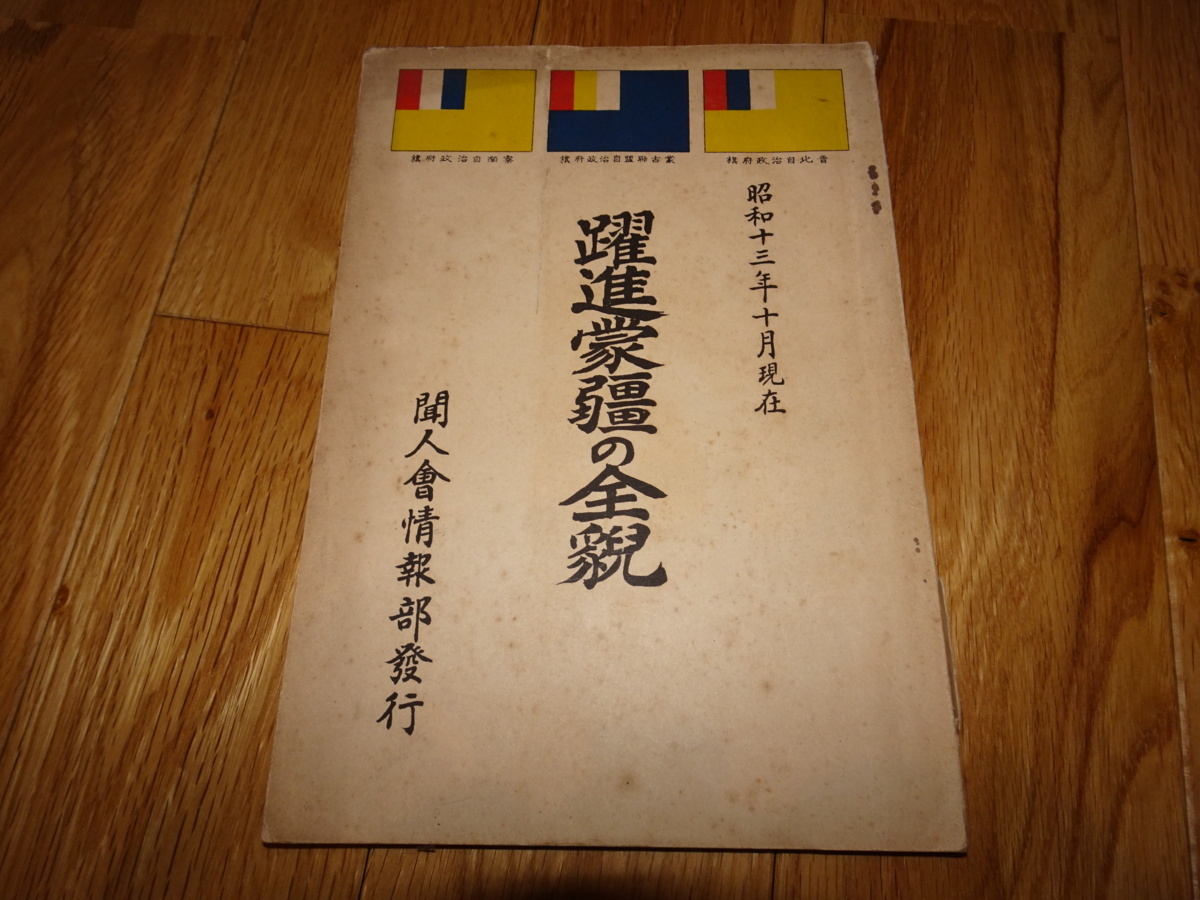 晋北自治政府旗
蒙古聯盟自治政府旗
察南自治政府旗
昭和十三年十月現在
躍進蒙疆の全貌
聞人會情報部發行